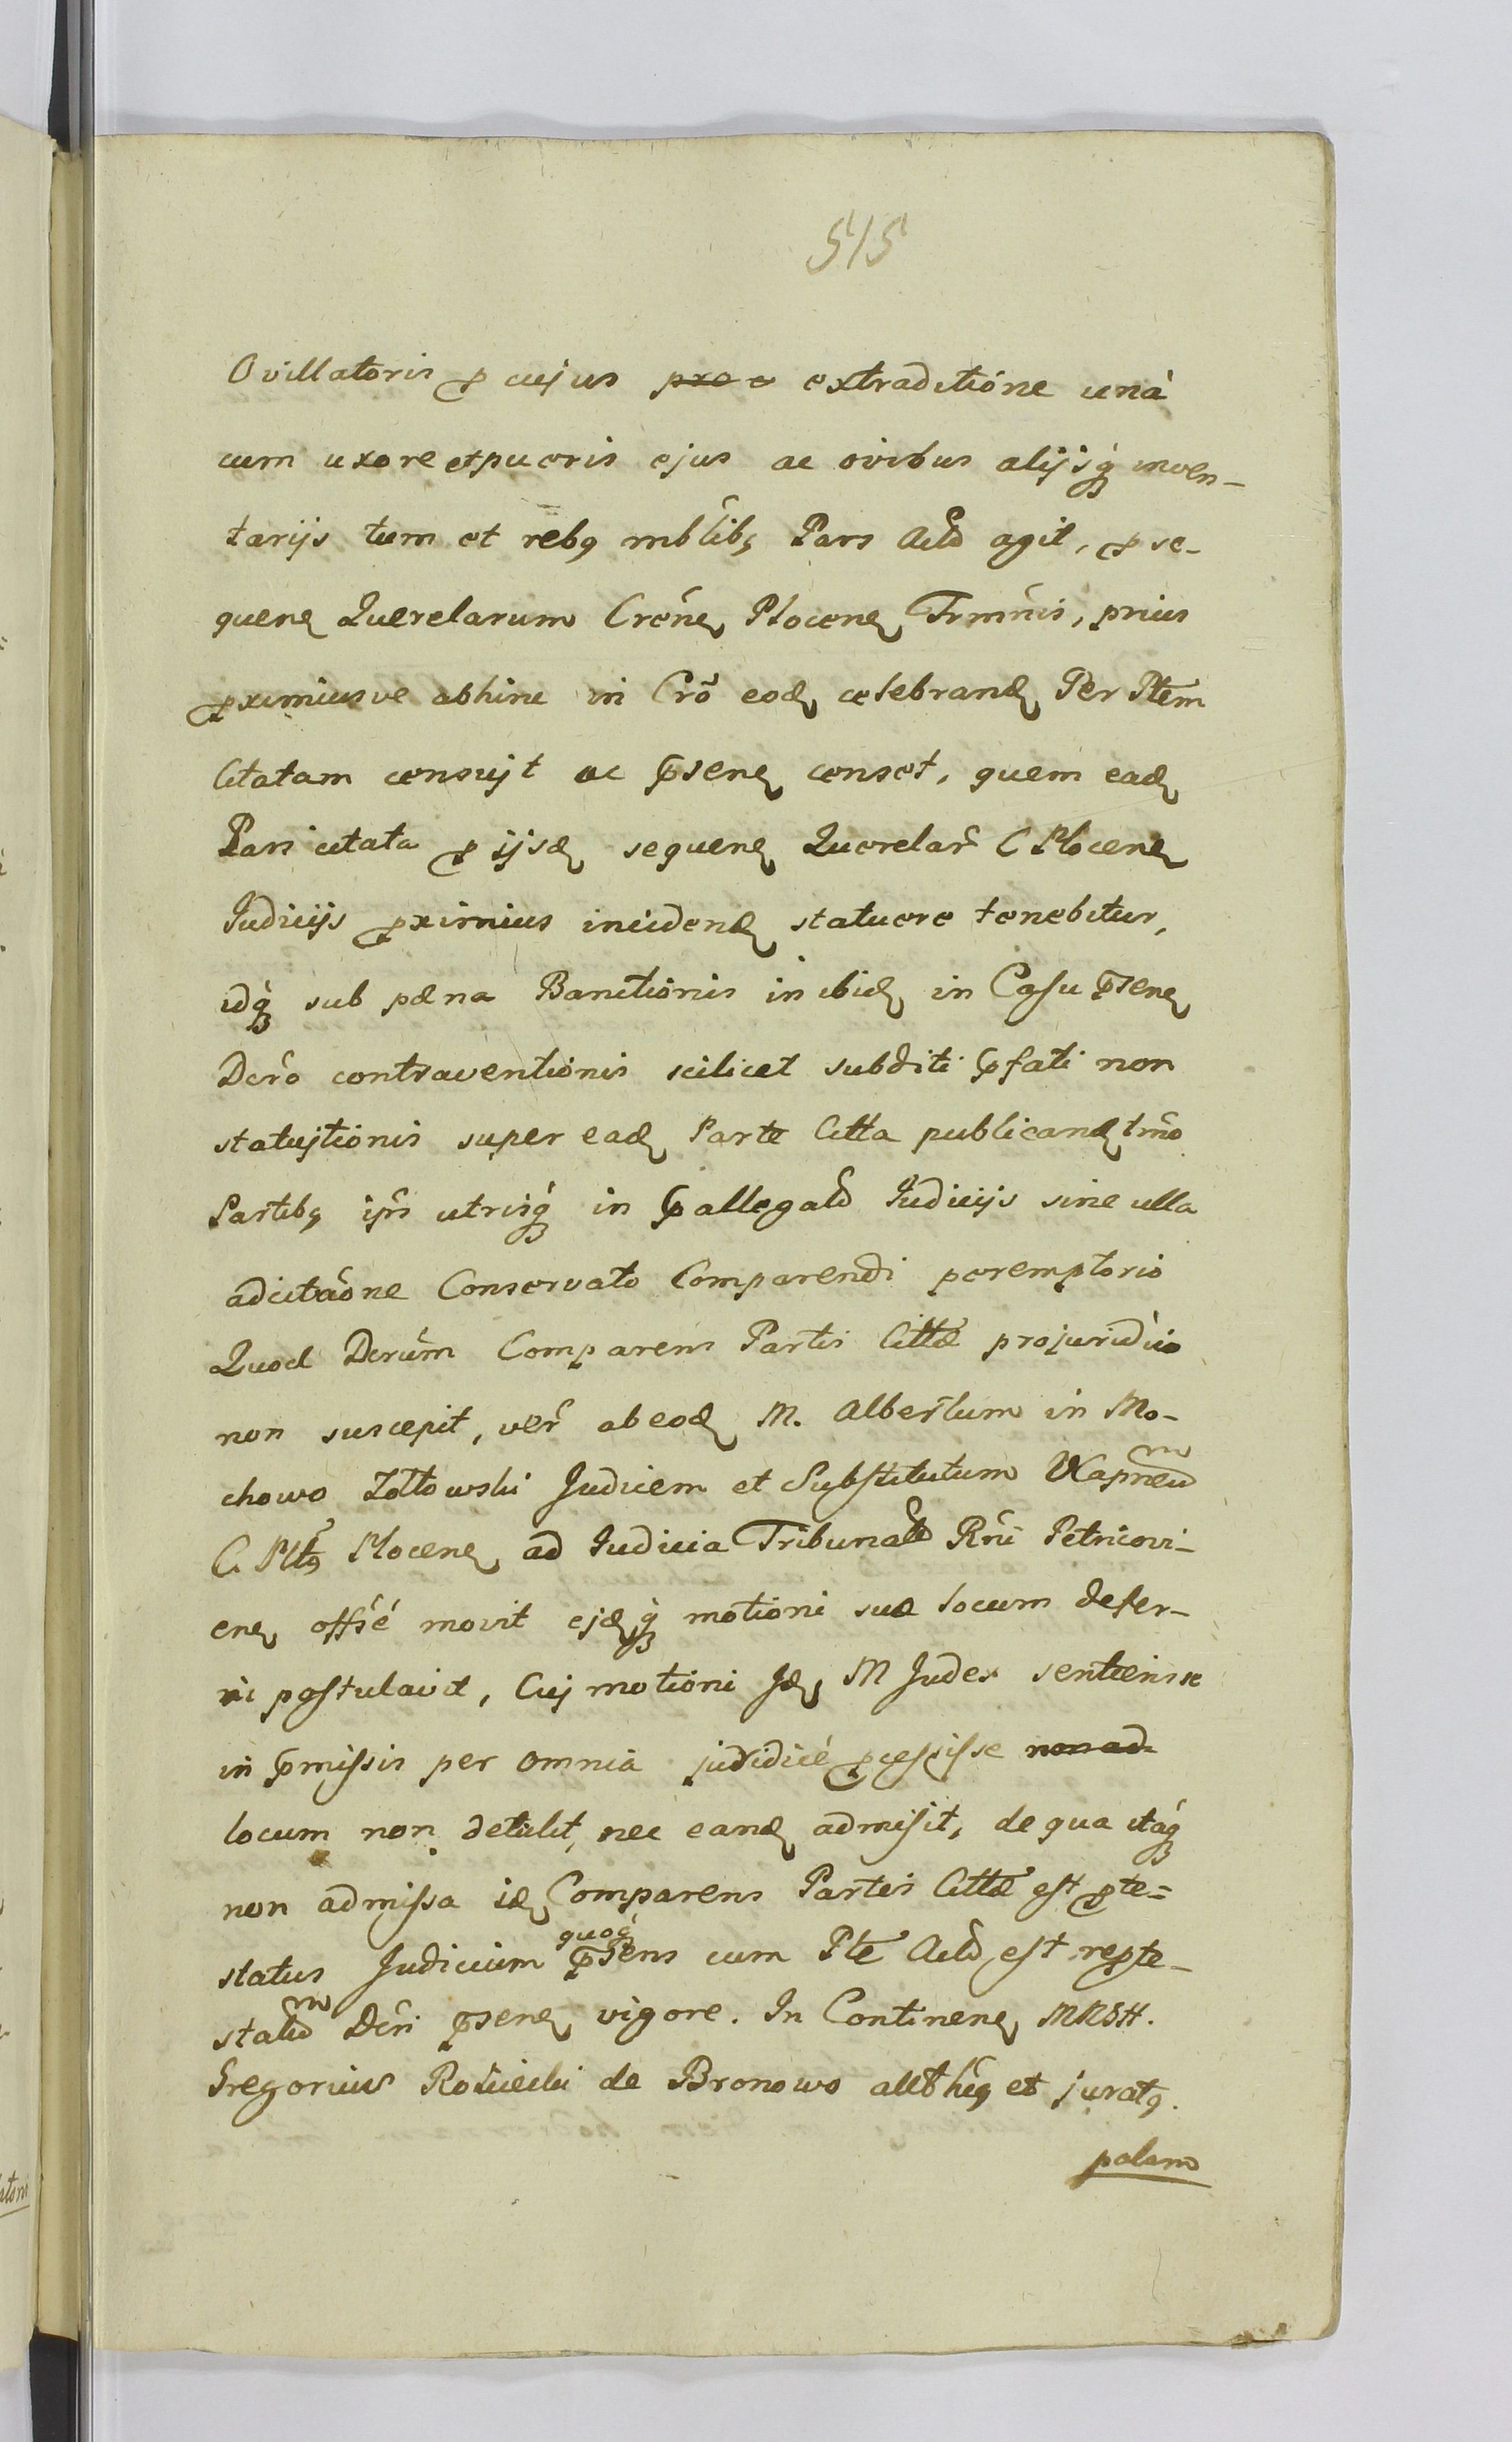 515
Ovillatoris p cujus pro e extraditióne unà
cum uxore et pueris ejus ac ovibus alijsq́ inven-
tarijs tum et rebq mblibq Pars Actò agit, p se-
quenē Querelarum Crónē Plocenē Trmńis, prius
pximiusve abhinc in Crõ eodē celebrandē Per Ptem
Citatam censujt ac pnsenē censet, quem eadē
Pars citata p ijsdē sequenē Querelar̃ C Plocenē
Judicijs pximius incidendē statuere tenebitur,
idq́ sub pæna Banitiónis in ibidē in Casu psenē
Dcró contraventiónis scilicet subditi pfati non
statujtiónis super eadē Parte Citta publicandē tmõ
Partibq ipñs utrisq́ in pallegatò Judicijs sine ulla
adcitãóne Conservato Comparendi peremptorio
Quod Dcrúm Comparens Partis Cittæ projuridico
non suscepit, ver̃ ab eodē M. Albertum in Mo-
chowo Zółtowski Judicem et Substitutum VCapneum
C. Pltq Plocenē ad Judicia Tribunatò Rńi Petricovi-
enē offsé movit ejdēq́ motioni suæ locum defer-
ri postulavit, Cuj motióni Idē M Judex sentiens se
in pmissis per omnia juridicé pcessisse non ad
locum non detulit, nec eandē admisit, de qua itáq́
non admissa idē Comparens Partis Cittæ est pte-
status Judicium quoq́ psens cum Pte Actò est repte-
statum Dcri psenē vigore. In Continenē MNSH.
Gregorius Rościcki de Bronowo alltḣiq et juratq.
palam